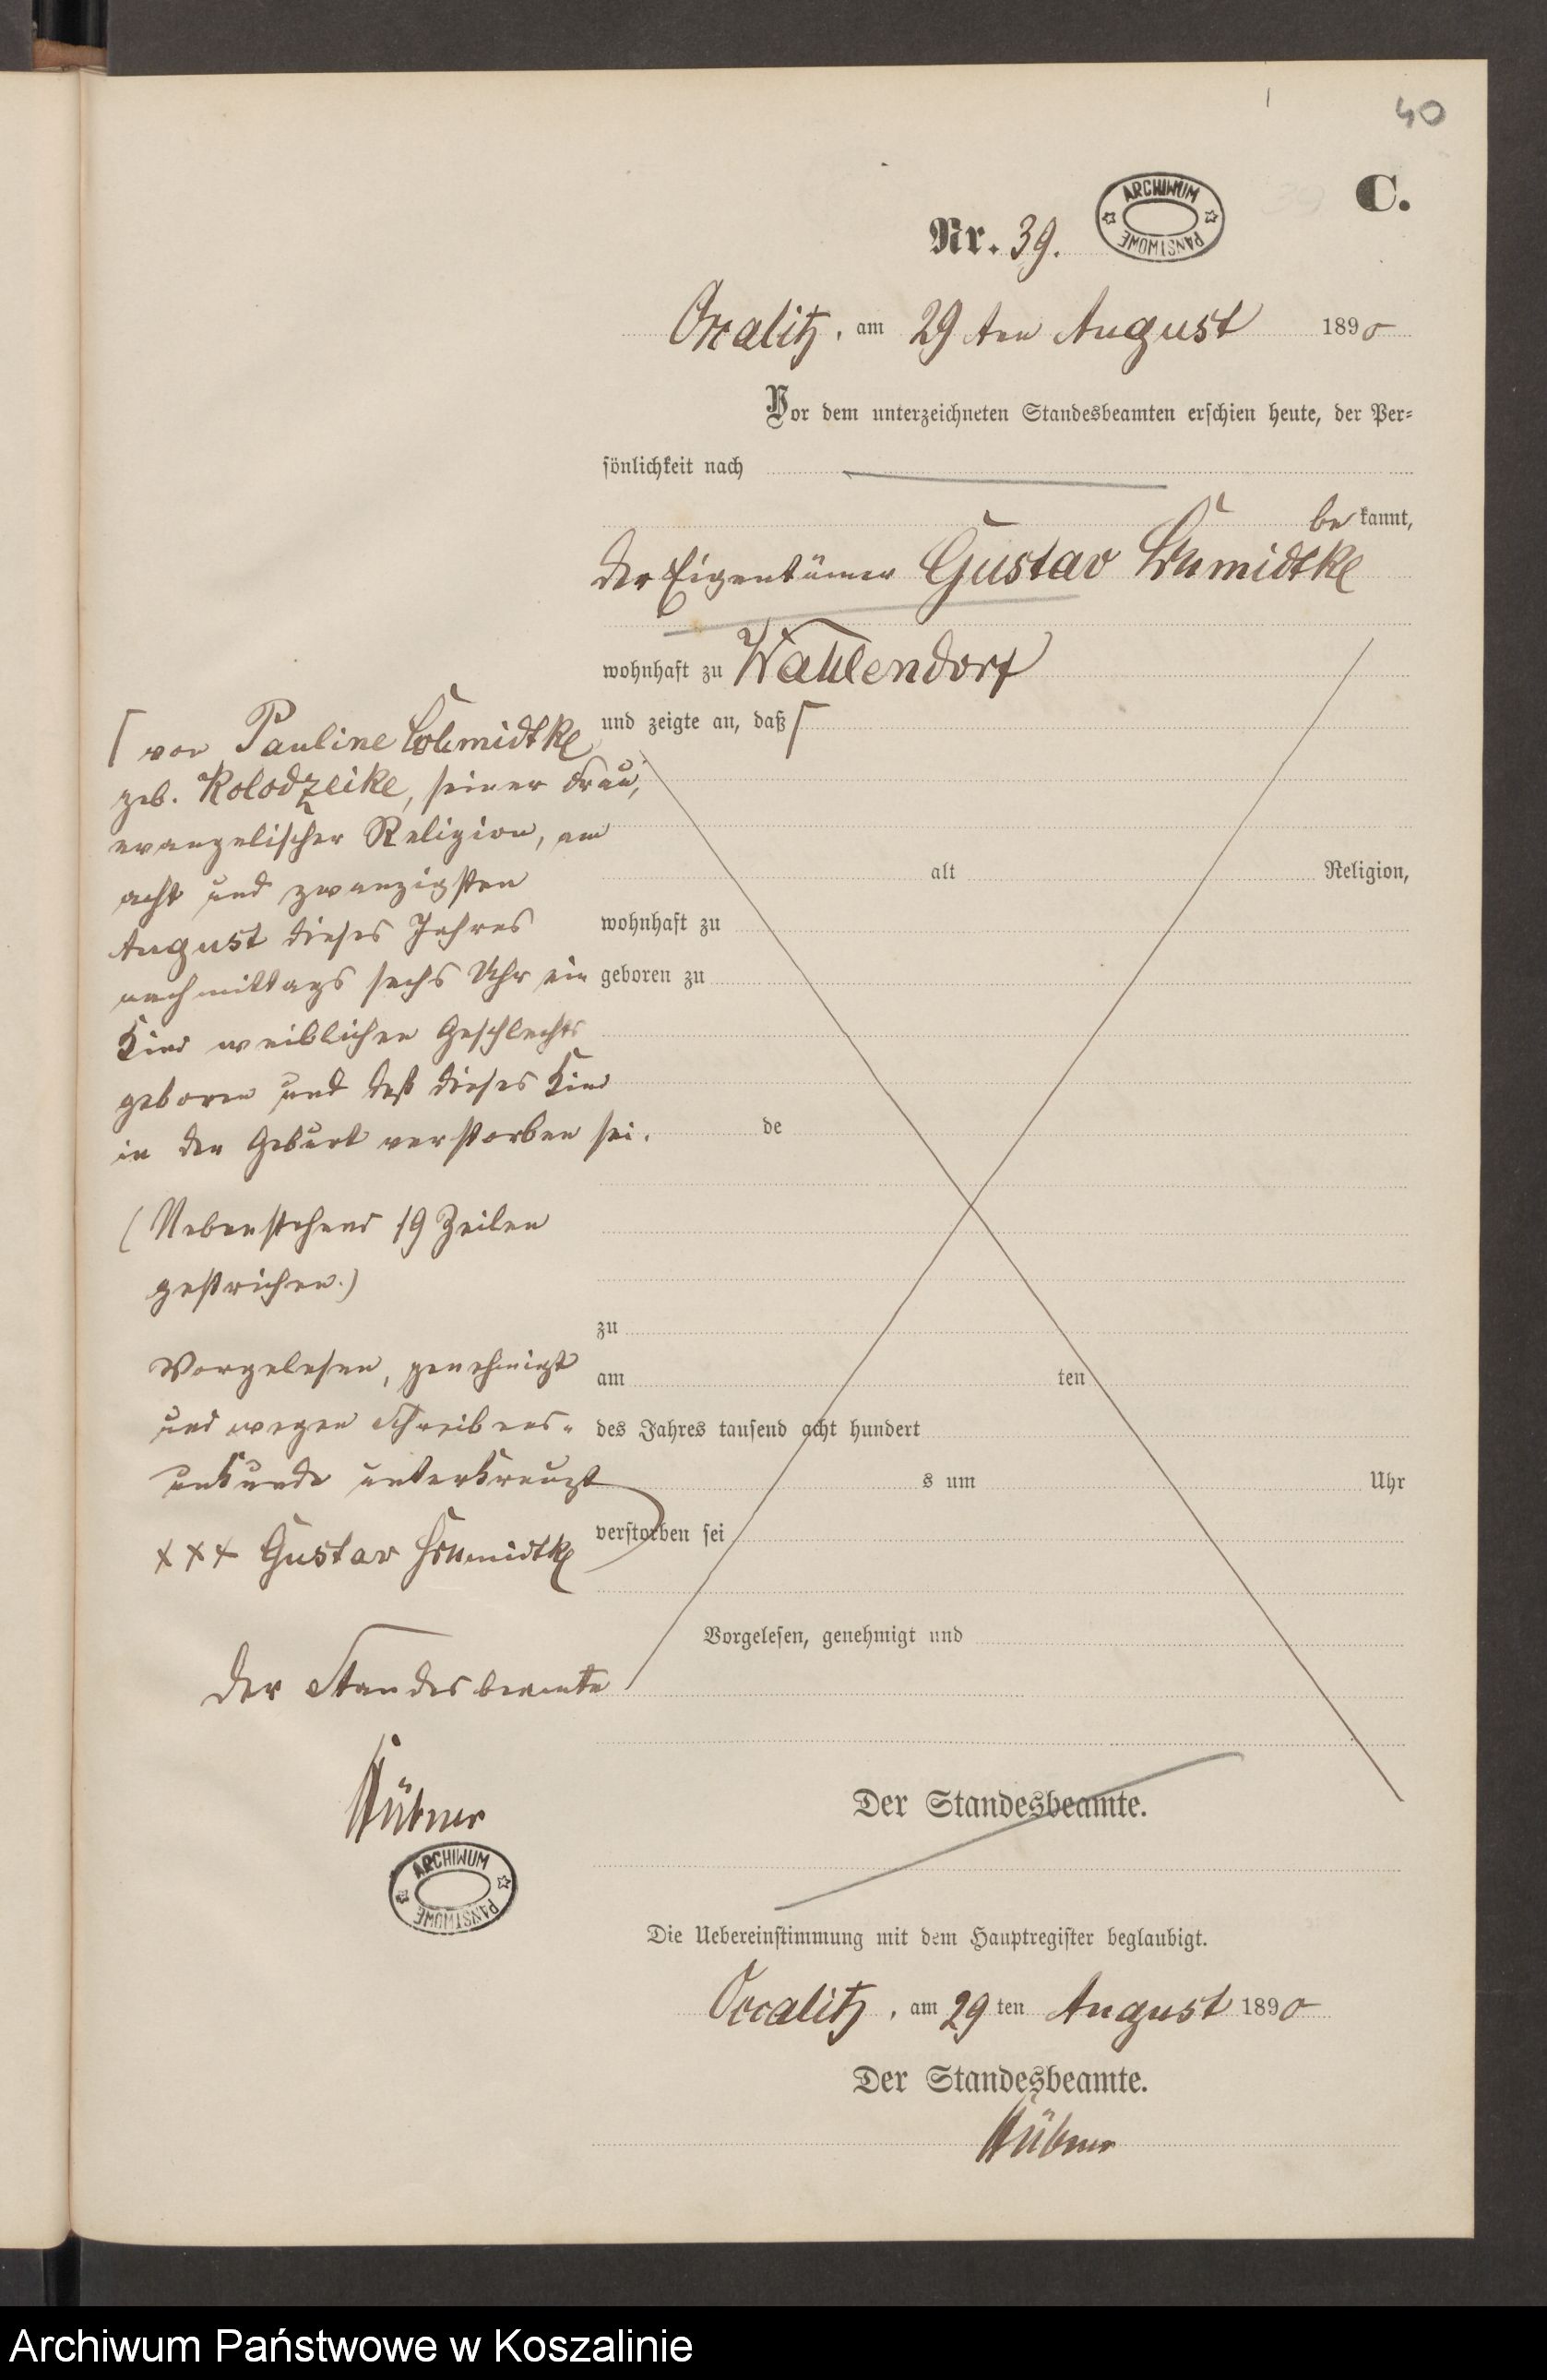 40
C.
Nr. 39.
ARCHIWUM PAŃSTWOWE
Occalitz, am 29 ten August 1890
Vor dem unterzeichneten Standesbeamten erschien heute, der Per-
sönlichkeit nach
be kannt,
der Eigentümer Gustav Schmidtke
wohnhaft zu Wahlendorf
und zeigte an, daß ⌈
⌈ von Pauline Schmidtke
geb. Kolodzeike, seiner Frau,
evangelischer Religion, am
acht und zwanzigsten
August dieses Jahres
nachmittags sechs Uhr ein
Kind weiblichen Geschlechts
geboren und daß dieses Kind
in der Geburt verstorben sei.
(Nebenstehend 19 Zeilen
gestrichen.)
Vorgelesen, genehmigt
und wegen Schreibens-
unkunde unterkreuzt
+++ Gustav Schmidtke
Der Standesbeamte
Hübner
ARCHIWUM PAŃSTWOWE
alt Religion,
wohnhaft zu
geboren zu
de
zu
am ten
des Jahres tausend acht hundert
s um Uhr
verstorben sei
Vorgelesen, genehmigt und
Der Standesbeamte.
Die Uebereinstimmung mit dem Hauptregister beglaubigt.
Occalitz, am 29 ten August 1890
Der Standesbeamte.
Hübner
Archiwum Państwowe w Koszalinie